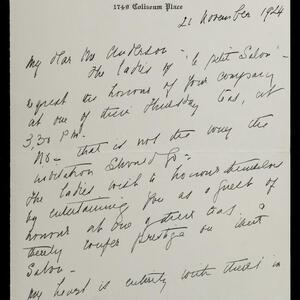 1749 Coliseum Place
21 November 1924
My dear Mr Anderson -
The ladies of "le petit Salon"
request the honour of your company
at one of their Thursday teas, at
3,30 P.M.
No - that is not the way the
invitation should go -
The ladies wish to honour themselves
by entertaining you as a guest of
honour at one of their teas, &
thereby confer prestige on their
Salon -
My heart is entirely with them in